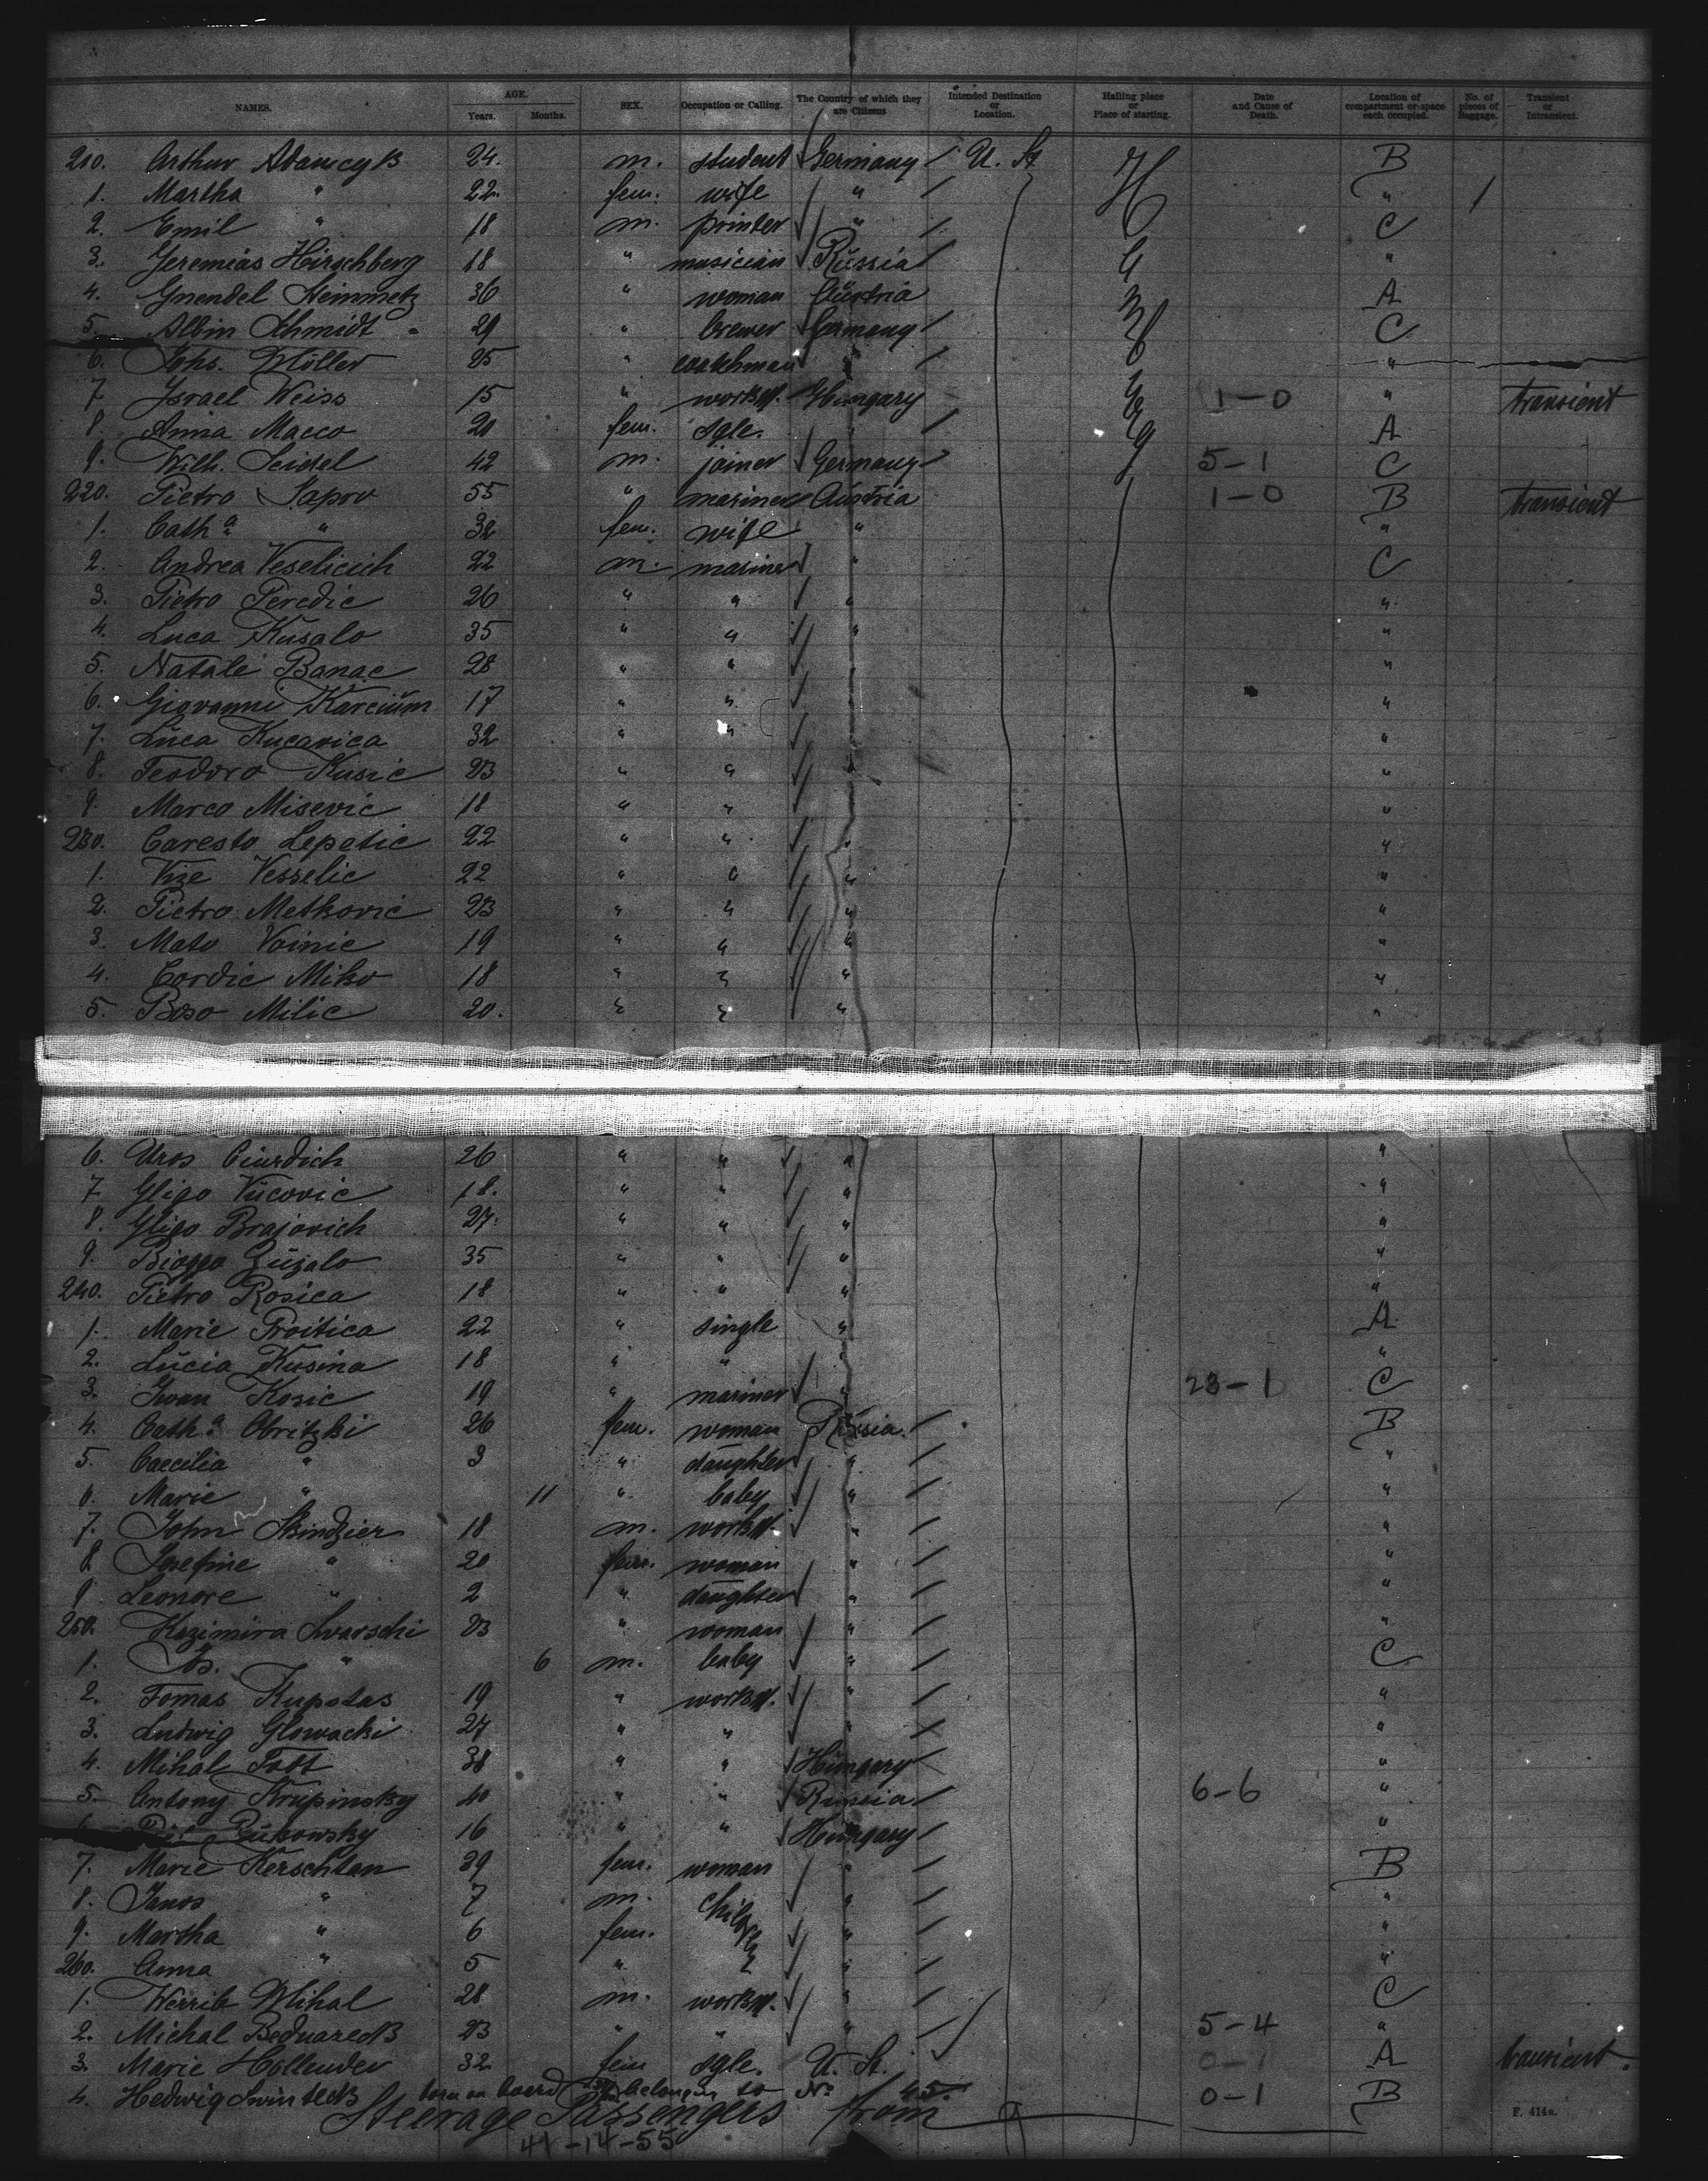 NAMES. AGE. Years. Months. SEX. Occupation or Calling. The Country of which they are Citizens Intended Destination or Location. Hailing place or Place of starting. Date and Cause of Death. Location of compartment or space each occupied. No. of pieces of Baggage. Transient or Intransient.
210. Arthur Adamcyk 24. m. student Germany U. St B
1. Martha " 22. fem. wife " "
2. Emil " 18 m. printer " C
3. Jeremias Hirschberg 18 " musician Russia "
4. Gnendel Steinmetz 36 " woman Austria A
5. Albin Schmidt 29 " brewer Germany C
6. Johs. Möller 25 " coachman " "
7 Israel Weiss 15 " workm. Hungary 1-0 " transient
8. Anna Macco 20 fem. sgle. " A
9. Wilh. Seidel 42 m. joiner Germany 5-1 C
220. Pietro Sapro 55 " mariner Austria 1-0 B transient
1. Cath.a " 32 fem. wife " "
2. Andrea Veselicich 22 m. mariner " C
3. Pietro Peredic 26 " " " "
4. Luca Kusalo 35 " " " "
5. Natale Banac 28 " " " "
6. Giovanni Karcium 17 " " " "
7. Luca Kucavica 32 " " " "
8. Teodoro Kusic 23 " " " "
9. Marco Misevic 18 " " " "
230. Caresto Lepetic 22 " " " "
1. Vize Vesselic 22 " " " "
2. Pietro Metkovic 23 " " " "
3. Mato Voinic 19 " " " "
4. Cordic Miko 18 " " " "
5. Boso Milic 20. " " " "
6. Uros Ciurdich 26 " " " "
7 Gligo Vucovic 18. " " " "
8. Gligo Brajovich 27. " " " "
9. Biaggo Guzalo 35 " " " "
240. Pietro Rosica 18 " " " "
1. Marie Troitica 22 " single " A
2. Lucia Kusina 18 " " " "
3. Ivan Kosic 19 " mariner " 23-1 C
4. Cath.a Obritzki 26 fem. woman Russia B
5. Caecilia " 3 " daughter " "
6. Marie " 11 " baby " "
7. John Skindzier 18 m. workm. " "
8. Josefine " 20 fem. woman " "
9 Leonore " 2 " daughter " "
250. Kazimira Swarschi 23 " woman " "
1. " 6 m. baby " C
2. Tomas Kupstas 19 " workm. " "
3. Ludwig Glowacki 27 " " " "
4. Mihal Tott 38 " " Hungary "
5. Antony Krupinsky 40 " " Russia 6-6 "
6. Bukowsky 16 " " Hungary "
7. Marie Kerschtan 29 fem. woman " B
8. Janos " 7 m. children " "
9. Martha " 6 fem. " "
260. Anna " 5 " " "
1. Werrib Mihal 28 m. workm. " C
2. Michal Bednareck 23 " " " 5-4 "
3. Marie Hollender 32 fem sgle. U. St. 0-1 A transient.
4. Hedwig Swinteck born on board belonging to No 45. 0-1 B
Steerage Passengers from
F. 414a.
41-14-55